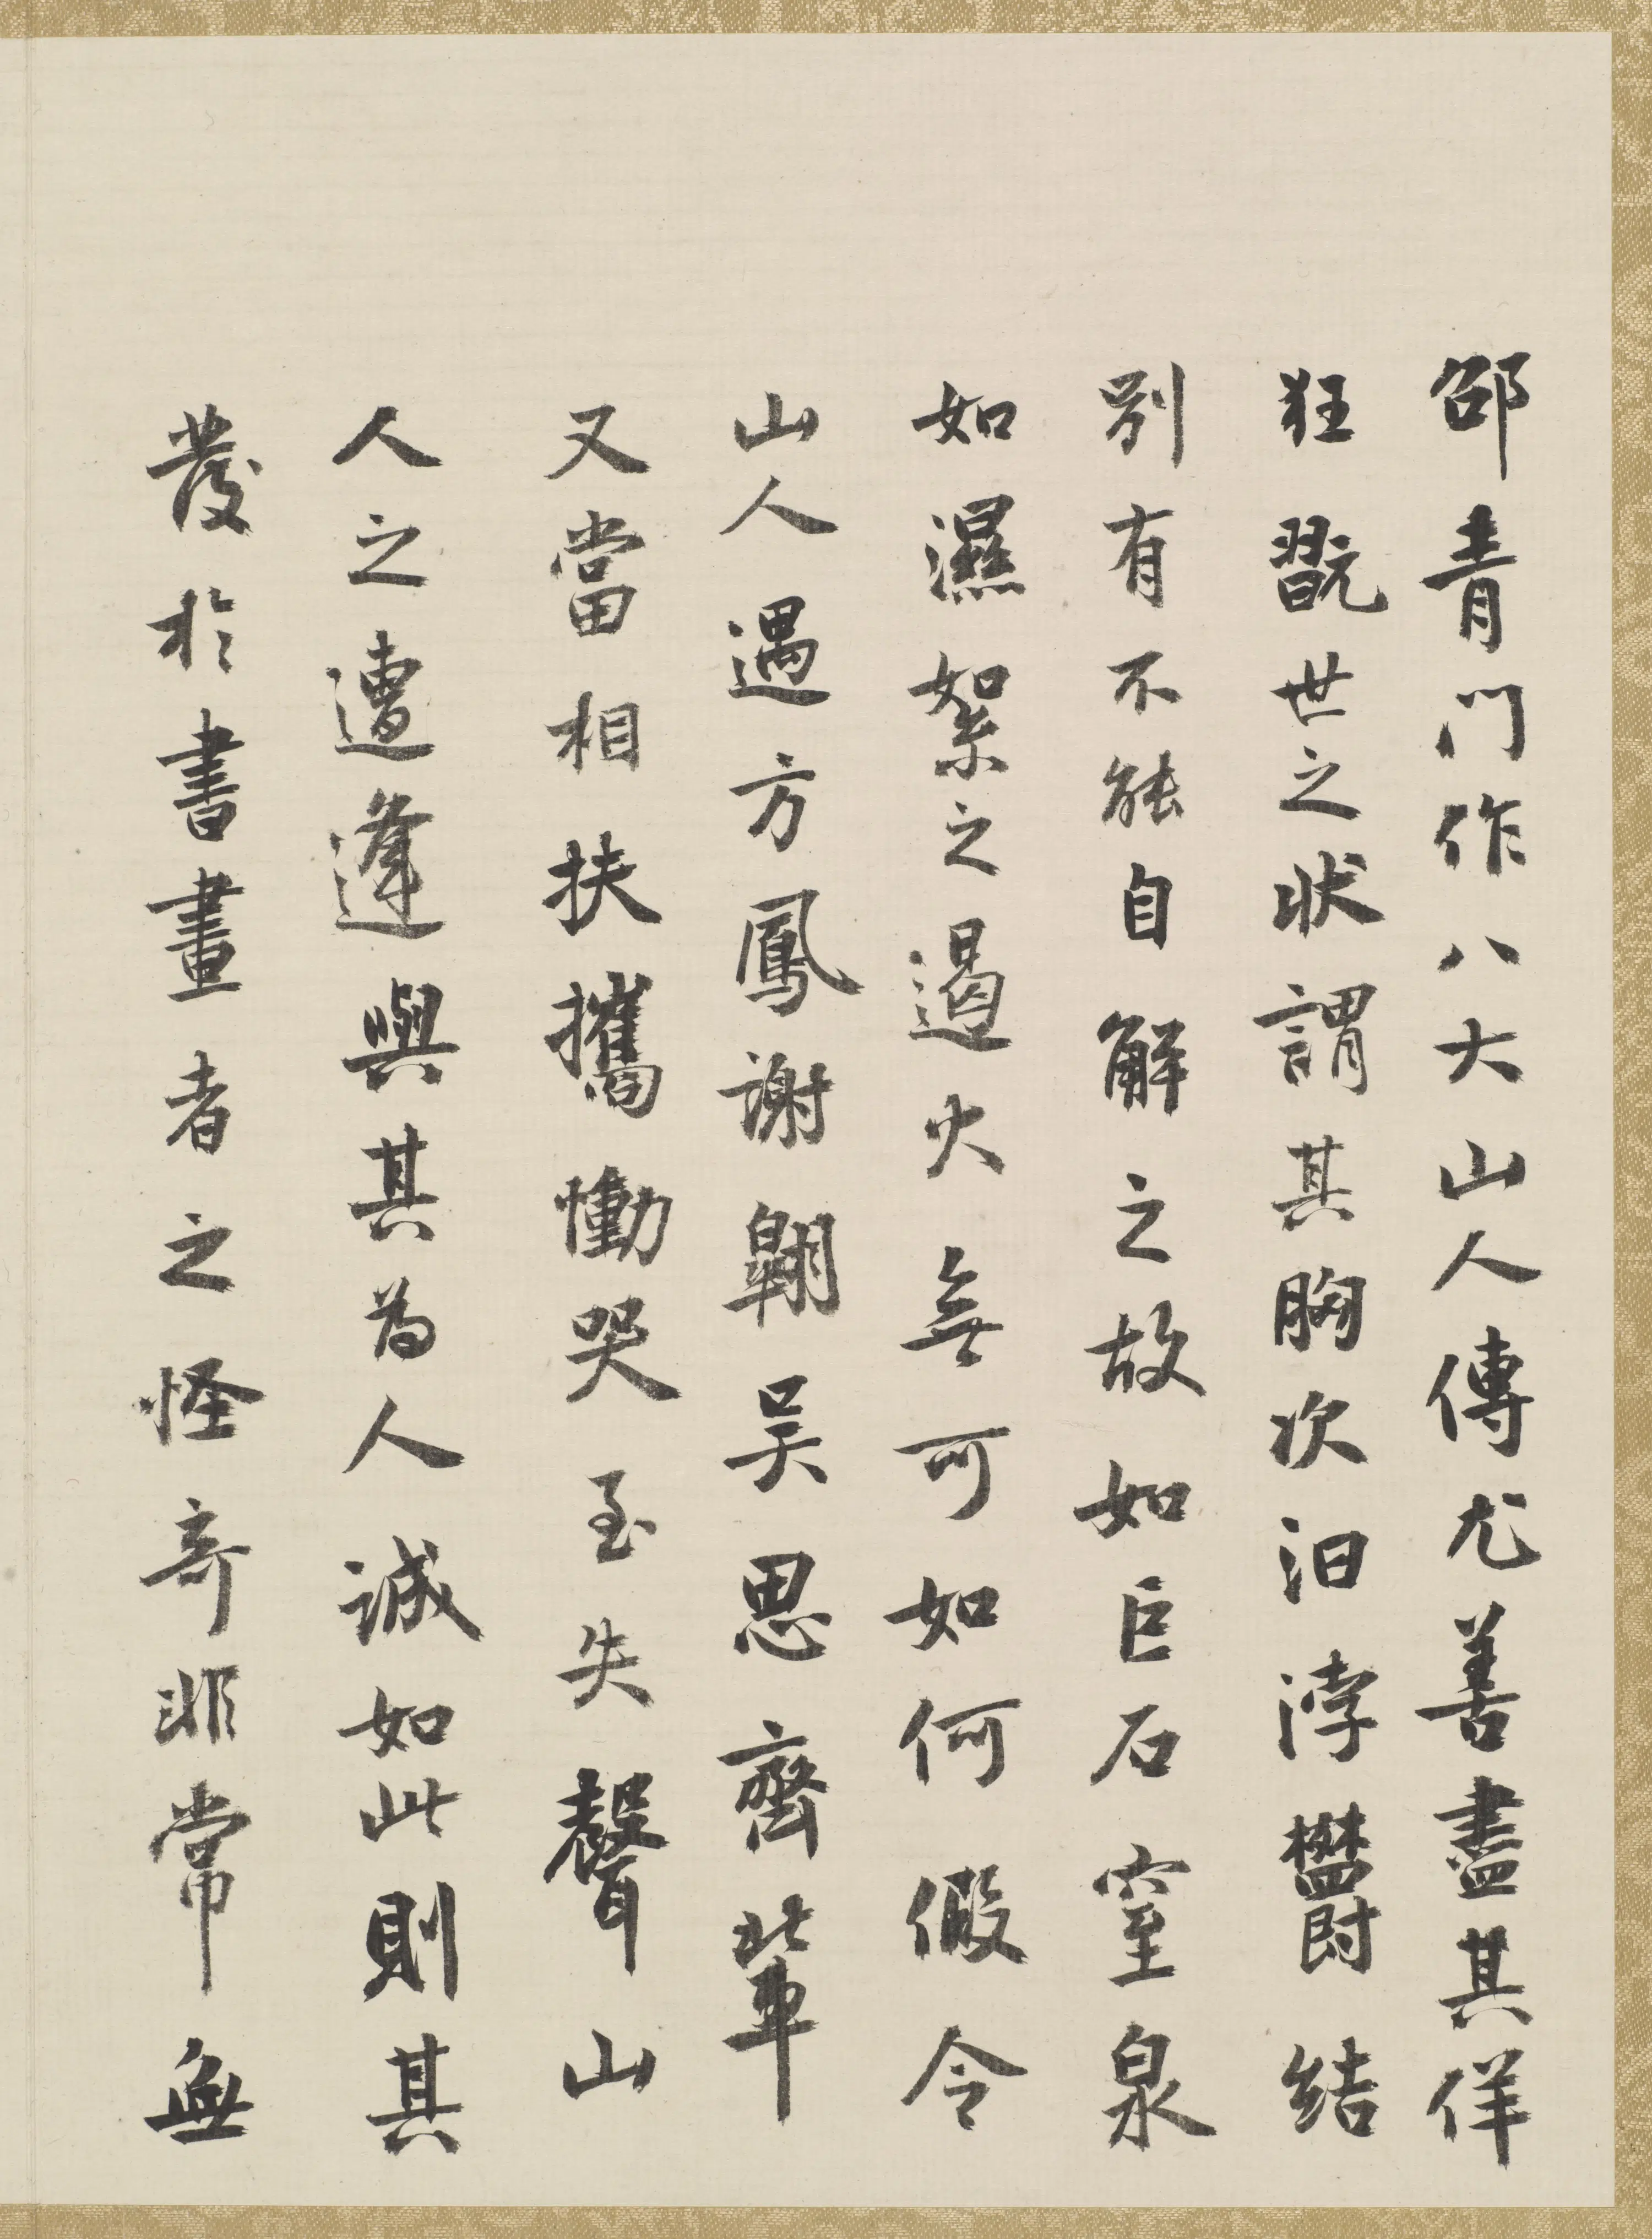 邵青門作八大山人傳尤善盡其佯
狂翫世之狀謂其胸次汩浡鬱結
別有不能自解之故如巨石窒泉
如濕絮之遏火無可如何假令
山人遇方鳳謝翺吳思齊輩
又當相扶攜慟哭至失聲山
人之遭逢與其為人誠如此則其
發於書畫者之怪奇非常無